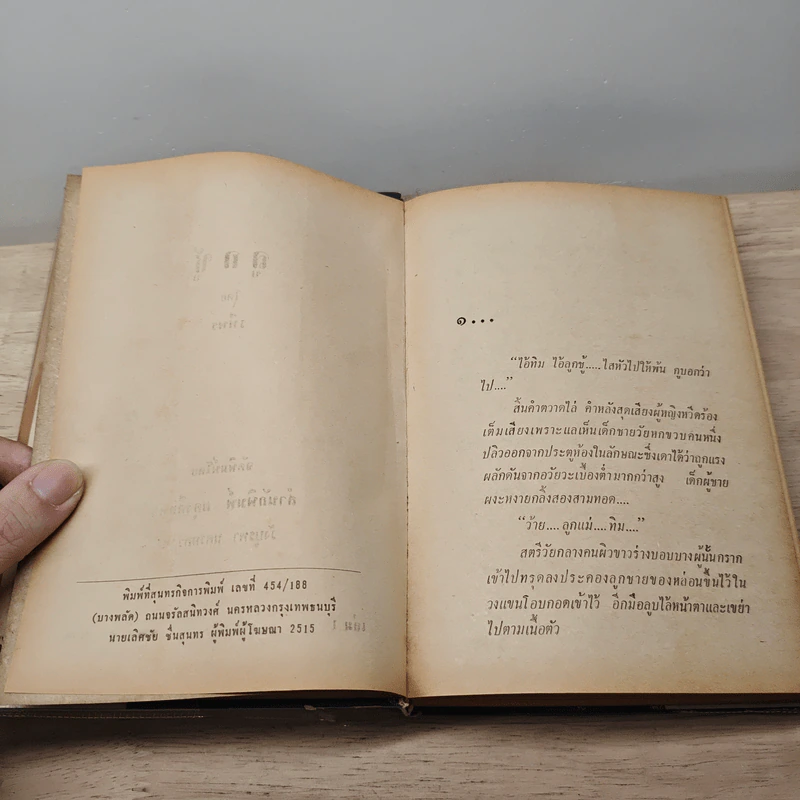 พิมพ์ที่สุนทรกิจการพิมพ์ เลขที่ 454/188
(บางพลัด) ถนนจรัลสนิทวงศ์ นครหลวงกรุงเทพธนบุรี
นายเลิศชัย ชื่นสุนทร ผู้พิมพ์ผู้โฆษณา 2515
๑...
“ไอ้ทิม ไอ้ลูกชู้.....ไสหัวไปให้พ้น กูบอกว่า
ไป....”
สิ้นคำตวาดไล่ คำหลังสุดเสียงผู้หญิงหวีดร้อง
เต็มเสียงเพราะแลเห็นเด็กชายวัยหกขวบคนหนึ่ง
ปลิวออกจากประตูห้องในลักษณะซึ่งเดาได้ว่าถูกแรง
ผลักดันจากอวัยวะเบื้องต่ำมากกว่าสูง เด็กผู้ชาย
ผงะหงายกลิ้งสองสามทอด....
“ว้าย....ลูกแม่....ทิม....”
สตรีวัยกลางคนผิวขาวร่างบอบบางผู้นั้นกราก
เข้าไปทรุดลงประคองลูกชายของหล่อนขึ้นไว้ใน
วงแขนโอบกอดเข้าไว้ อีกมือลูบไล้หน้าตาและเขย่า
ไปตามเนื้อตัว